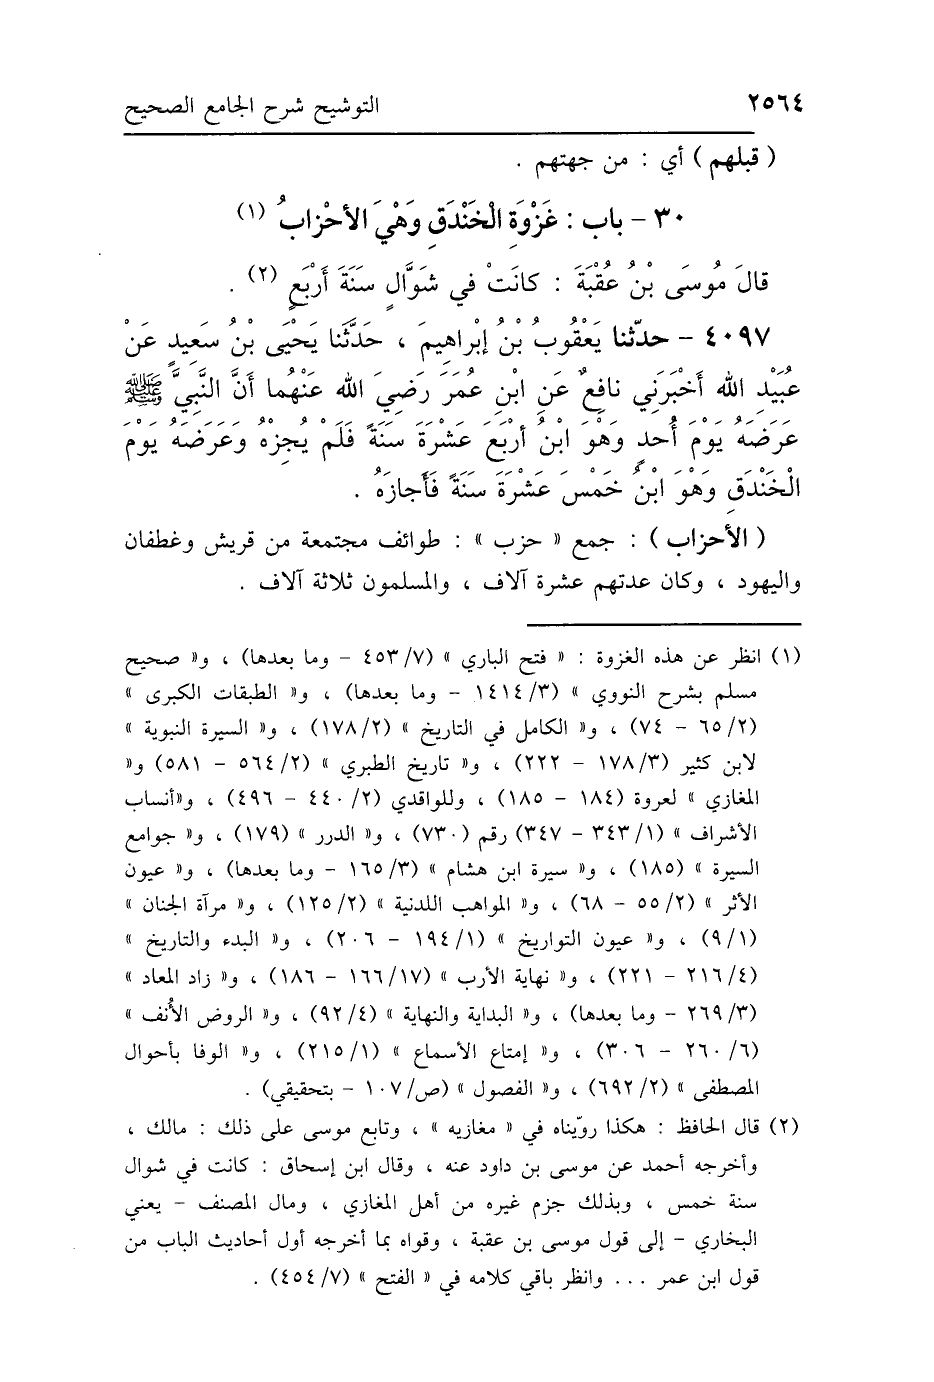 ٢٥٦٤ التوشيح شرح الجامع الصحيح
( قبلهم ) أي : من جهتهم .
٣٠ – باب : غَزْوَةِ الْخَنْدَقِ وَهْيَ الأَحْزَابُ (١)
قالَ مُوسَى بْنُ عُقْبَةَ : كانَتْ في شَوَّالٍ سَنَةَ أَرْبَعٍ (٢) .
٤٠٩٧ – حدّثنا يَعْقُوبُ بْنُ إِبْراهِيمَ ، حَدَّثَنا يَحْيَى بْنُ سَعِيدٍ عَنْ
عُبَيْدِ الله أَخْبَرَنِي نافِعٌ عَنِ ابْنِ عُمَرَ رَضِيَ الله عَنْهُما أَنَّ النَّبِيَّ ﷺ
عَرَضَهُ يَوْمَ أُحدٍ وَهْوَ ابْنُ أَرْبَعَ عَشْرَةَ سَنَةً فَلَمْ يُجِزْهُ وَعَرَضَهُ يَوْمَ
الْخَنْدَقِ وَهْوَ ابْنُ خَمْسَ عَشْرَةَ سَنَةً فَأَجازَهُ .
( الأحزاب ) : جمع « حزب » : طوائف مجتمعة من قريش وغطفان
واليهود ، وكان عدتهم عشرة آلاف ، والمسلمون ثلاثة آلاف .
(١) انظر عن هذه الغزوة : « فتح الباري » (٤٥٣/٧ – وما بعدها) ، و« صحيح
مسلم بشرح النووي » (١٤١٤/٣ – وما بعدها) ، و« الطبقات الكبرى »
(٦٥/٢ – ٧٤) ، و« الكامل في التاريخ » (١٧٨/٢) ، و« السيرة النبوية »
لابن كثير (١٧٨/٣ – ٢٢٢) ، و« تاريخ الطبري » (٥٦٤/٢ – ٥٨١) و«
المغازي » لعروة (١٨٤ – ١٨٥) ، وللواقدي (٤٤٠/٢ – ٤٩٦) ، و«أنساب
الأشراف » (٣٤٣/١ – ٣٤٧) رقم (٧٣٠) ، و« الدرر » (١٧٩) ، و« جوامع
السيرة » (١٨٥) ، و« سيرة ابن هشام » (١٦٥/٣ – وما بعدها) ، و« عيون
الأثر » (٥٥/٢ – ٦٨) ، و« المواهب اللدنية » (١٢٥/٢) ، و« مرآة الجنان »
(٩/١) ، و« عيون التواريخ » (١٩٤/١ – ٢٠٦) ، و« البدء والتاريخ »
(٢١٦/٤ – ٢٢١) ، و« نهاية الأرب » (١٦٦/١٧ – ١٨٦) ، و« زاد المعاد »
(٢٦٩/٣ – وما بعدها) ، و« البداية والنهاية » (٩٢/٤) ، و« الروض الأُنف »
(٢٦٠/٦ – ٣٠٦) ، و« إمتاع الأسماع » (٢١٥/١) ، و« الوفا بأحوال
المصطفى » (٦٩٢/٢) ، و« الفصول » (ص/١٠٧ – بتحقيقي) .
(٢) قال الحافظ : هكذا روّيناه في « مغازيه » ، وتابع موسى على ذلك : مالك ،
وأخرجه أحمد عن موسى بن داود عنه ، وقال ابن إسحاق : كانت في شوال
سنة خمس ، وبذلك جزم غيره من أهل المغازي ، ومال المصنف – يعني
البخاري – إلى قول موسى بن عقبة ، وقواه بما أخرجه أول أحاديث الباب من
قول ابن عمر ... وانظر باقي كلامه في « الفتح » (٤٥٤/٧) .